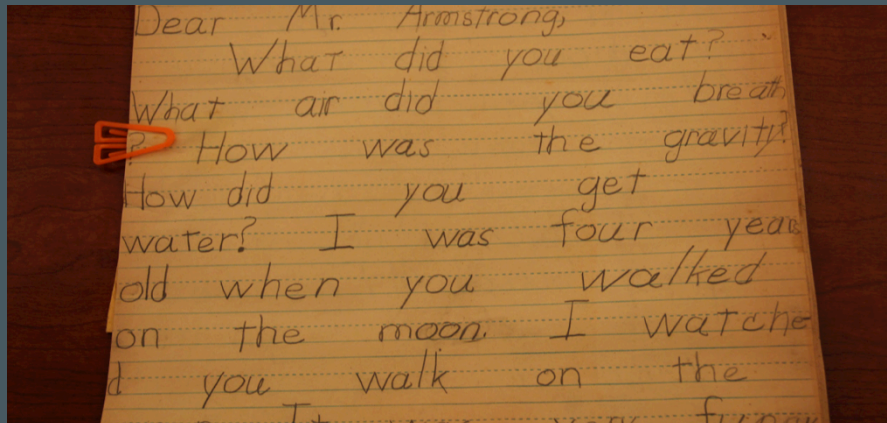 Dear Mr. Armstrong,
What did you eat?
What air did you breath
? How was the gravity?
How did you get
water? I was four years
old when you walked
on the moon. I watche
d you walk on the
It very